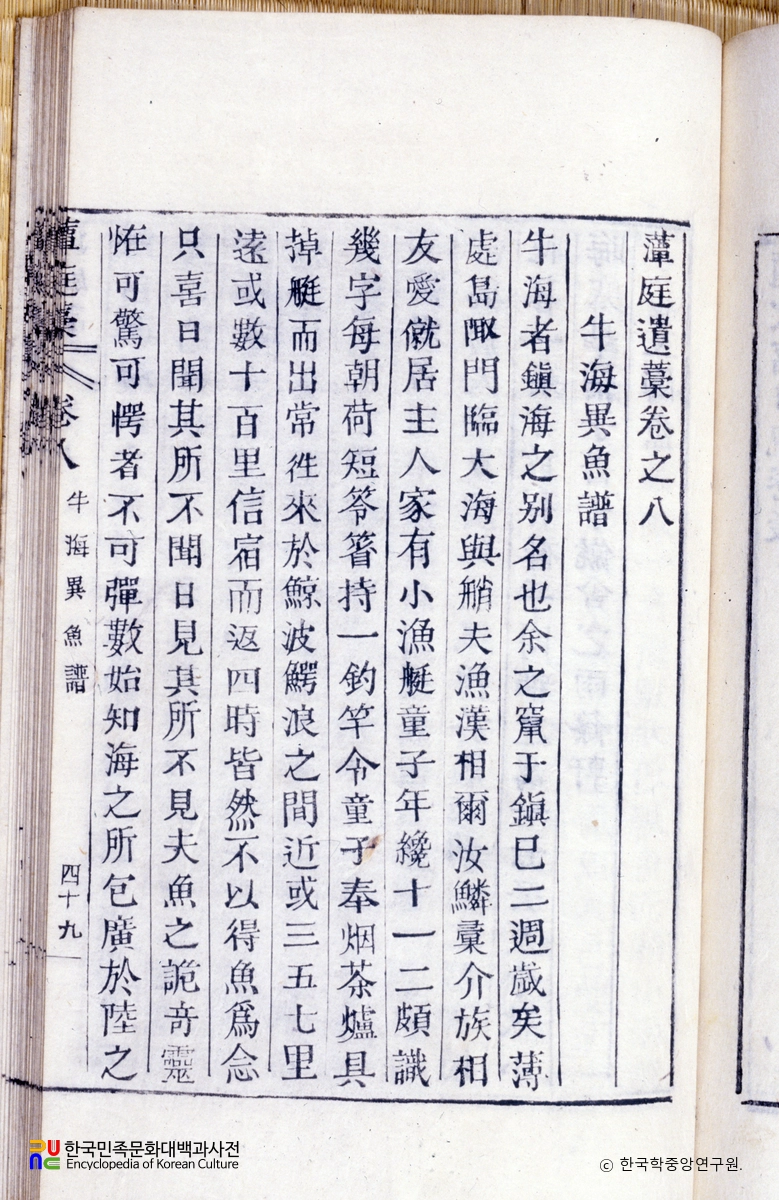 藫庭遺藁卷之八
牛海異魚譜
牛海者鎭海之別名也余之竄于鎭已二週歲矣薄
處島陬門臨大海與艄夫漁漢相爾汝鱗彙介族相
友愛僦居主人家有小漁艇童子年纔十一二頗識
幾字每朝荷短笭箵持一釣竿令童子奉烟茶爐具
掉艇而出常徃來於鯨波鰐浪之間近或三五七里
遠或數十百里信宿而返四時皆然不以得魚爲念
只喜日聞其所不聞日見其所不見夫魚之詭奇靈
恠可驚可愕者不可彈數始知海之所包廣於陸之
藫庭藁 卷八 牛海異魚譜 四十九
한국민족문화대백과사전
Encyclopedia of Korean Culture
ⓒ 한국학중앙연구원.